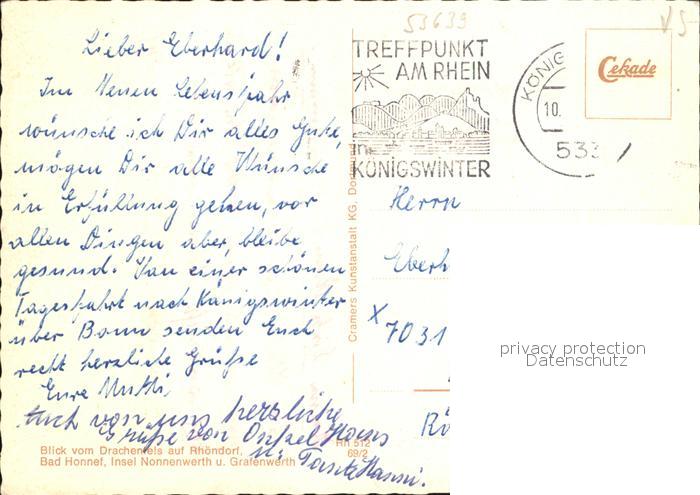 53639
VS
Lieber Eberhard!
Im Neuen Lebensjahr
wünsche ich Dir alles Gute,
mögen Dir alle Wünsche
in Erfüllung gehen, vor
allen Dingen aber, bleibe
gesund. Von einer schönen
Tagesfahrt nach Königswinter
über Bonn senden Euch
recht herzliche Grüße
Eure Mutti,
Auch von uns herzliche
Grüße von Onkel Hans
u. Tante Hanni.
Blick vom Drachenfels auf Rhöndorf,
Bad Honnef, Insel Nonnenwerth u. Grafenwerth
Rh 512
69/2
Cramers Kunstanstalt KG, Do
TREFFPUNKT
AM RHEIN
in
KÖNIGSWINTER
KÖNIG
10.
533
Cekade
Herrn
Eberh
x
7031
Rö
privacy protection
Datenschutz